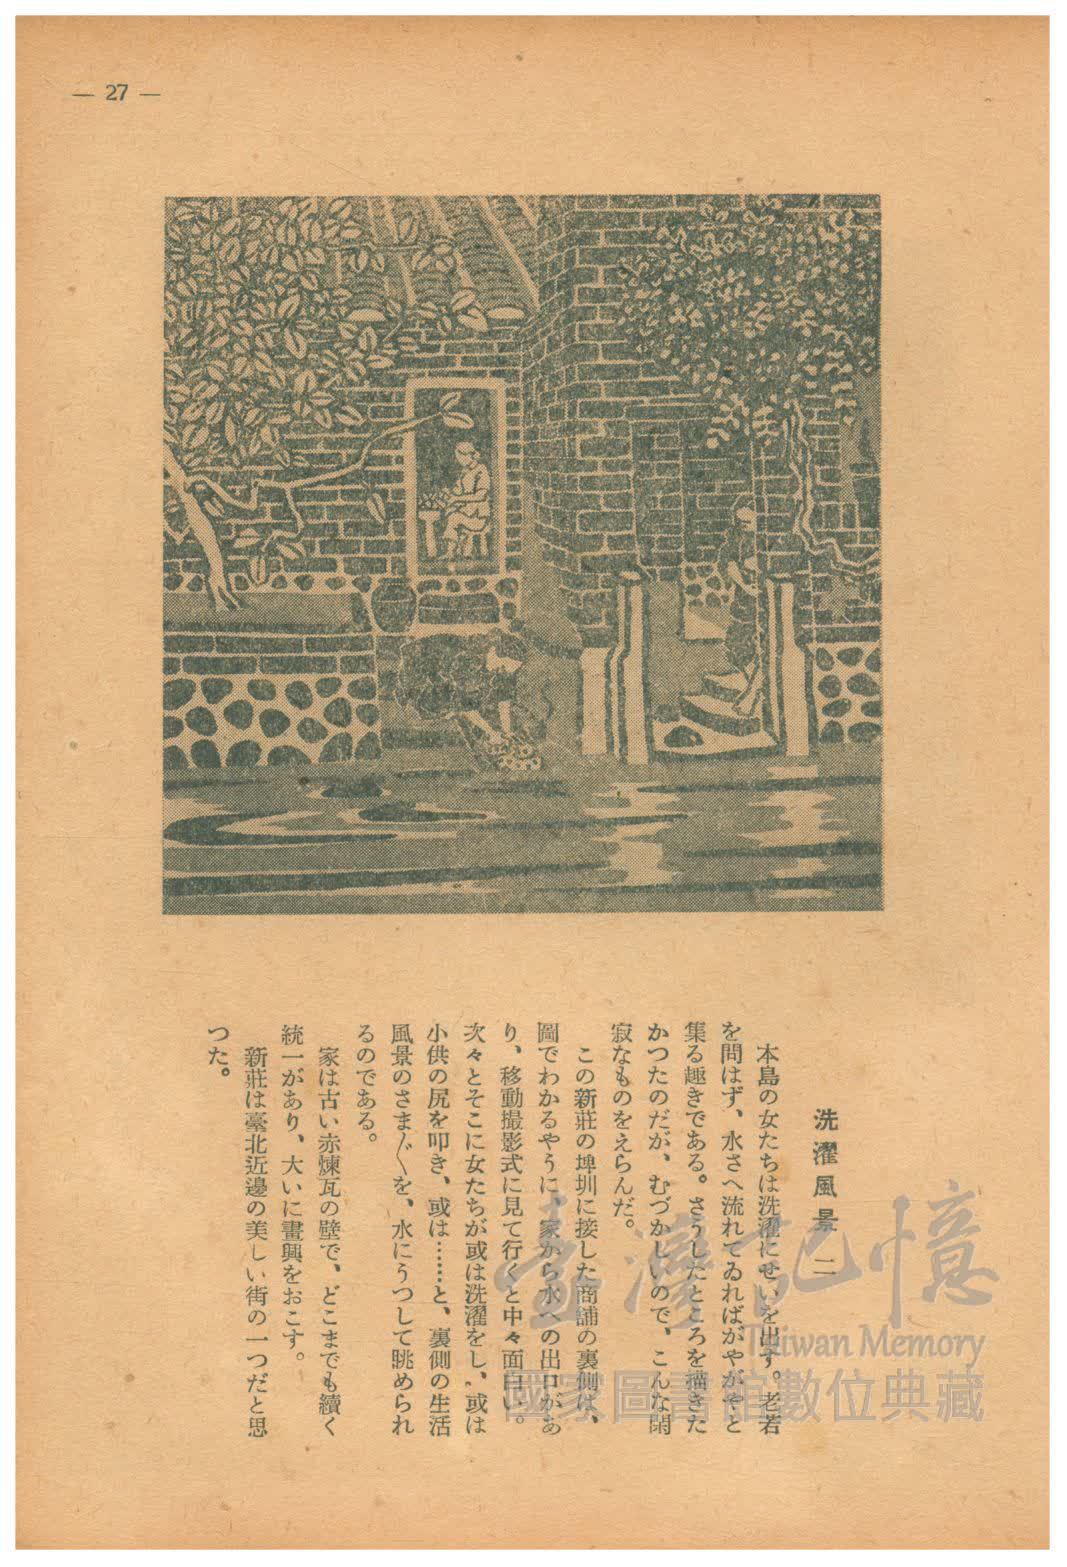 — 27 —
洗濯風景 二
本島の女たちは洗濯にせいを出す。老若
を問はず、水さへ流れてゐればがやがやと
集る趣きである。さうしたところを描きた
かつたのだが、むづかしいので、こんな閑
寂なものをえらんだ。
この新莊の埤圳に接した商舖の裏側は、
圖でわかるやうに、家から水への出口があ
り、移動撮影式に見て行くと中々面白い。
次々とそこに女たちが或は洗濯をし、或は
小供の尻を叩き、或は……と、裏側の生活
風景のさま〴〵を、水にうつして眺められ
るのである。
家は古い赤煉瓦の壁で、どこまでも續く
統一があり、大いに畫興をおこす。
新莊は臺北近邊の美しい街の一つだと思
つた。
臺灣記憶
Taiwan Memory
國家圖書館數位典藏